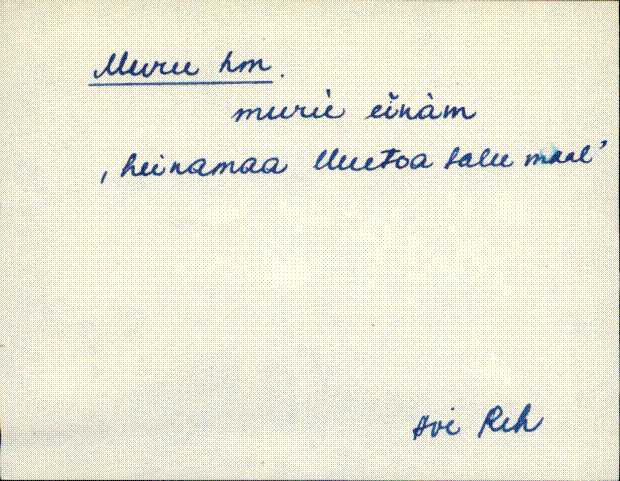 Muru hm.
muriè eĭnàm
‚heinamaa Uuetoa talu maal’
Avi Reh